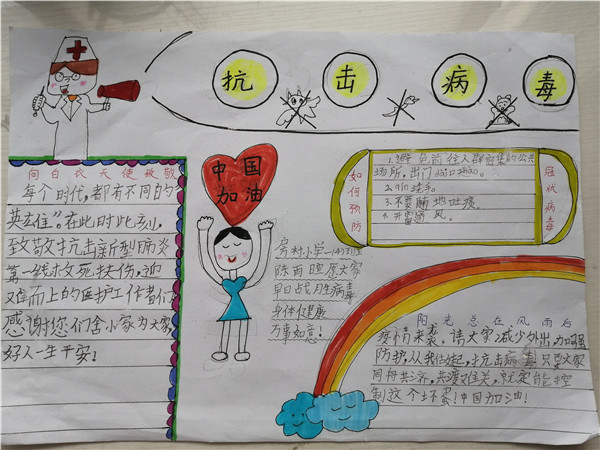 抗击病毒
向白衣天使致敬
每个时代,都有不同的
英雄”。在此时此刻,
致敬抗击新型肺炎
第一线救死扶伤,迎
难而上的医护工作者们
感谢您们舍小家为大家
好人一生平安!
中国
加油
房村小学一(4)班
陈雨暄愿大家
早日战胜病毒
身体健康
万事如意!
如何预防
冠状病毒
1.避免前往人群密集的公共
场所,出门
2.勤洗手。
3.不要随地吐痰。
4.开窗通风。
阳光总在风雨后
疫情来袭,请大家减少外出,加强
防护,从我做起,抗击病毒只要大家
同舟共济,共渡难关,就定能控
制这个坏蛋!中国加油!